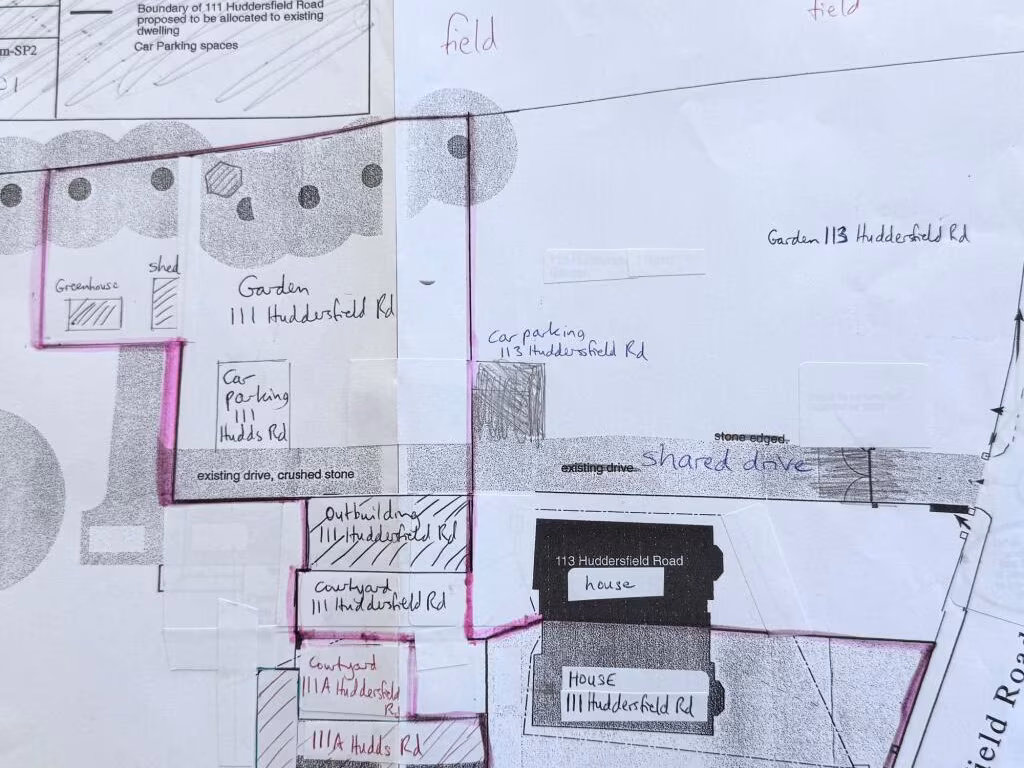 Boundary of 111 Huddersfield Road
proposed to be allocated to existing
dwelling
Car Parking spaces
m-SP2
field
field
Garden 113 Huddersfield Rd
shed
Greenhouse
Garden
111 Huddersfield Rd
Car parking
113 Huddersfield Rd
Car
parking
111
Hudds Rd
stone edged
existing drive
shared drive
existing drive, crushed stone
Outbuilding
111 Huddersfield Rd
113 Huddersfield Road
house
Courtyard
111 Huddersfield Rd
Courtyard
111A Huddersfield
Rd
HOUSE
111 Huddersfield Rd
111A Hudds Rd
ield Road